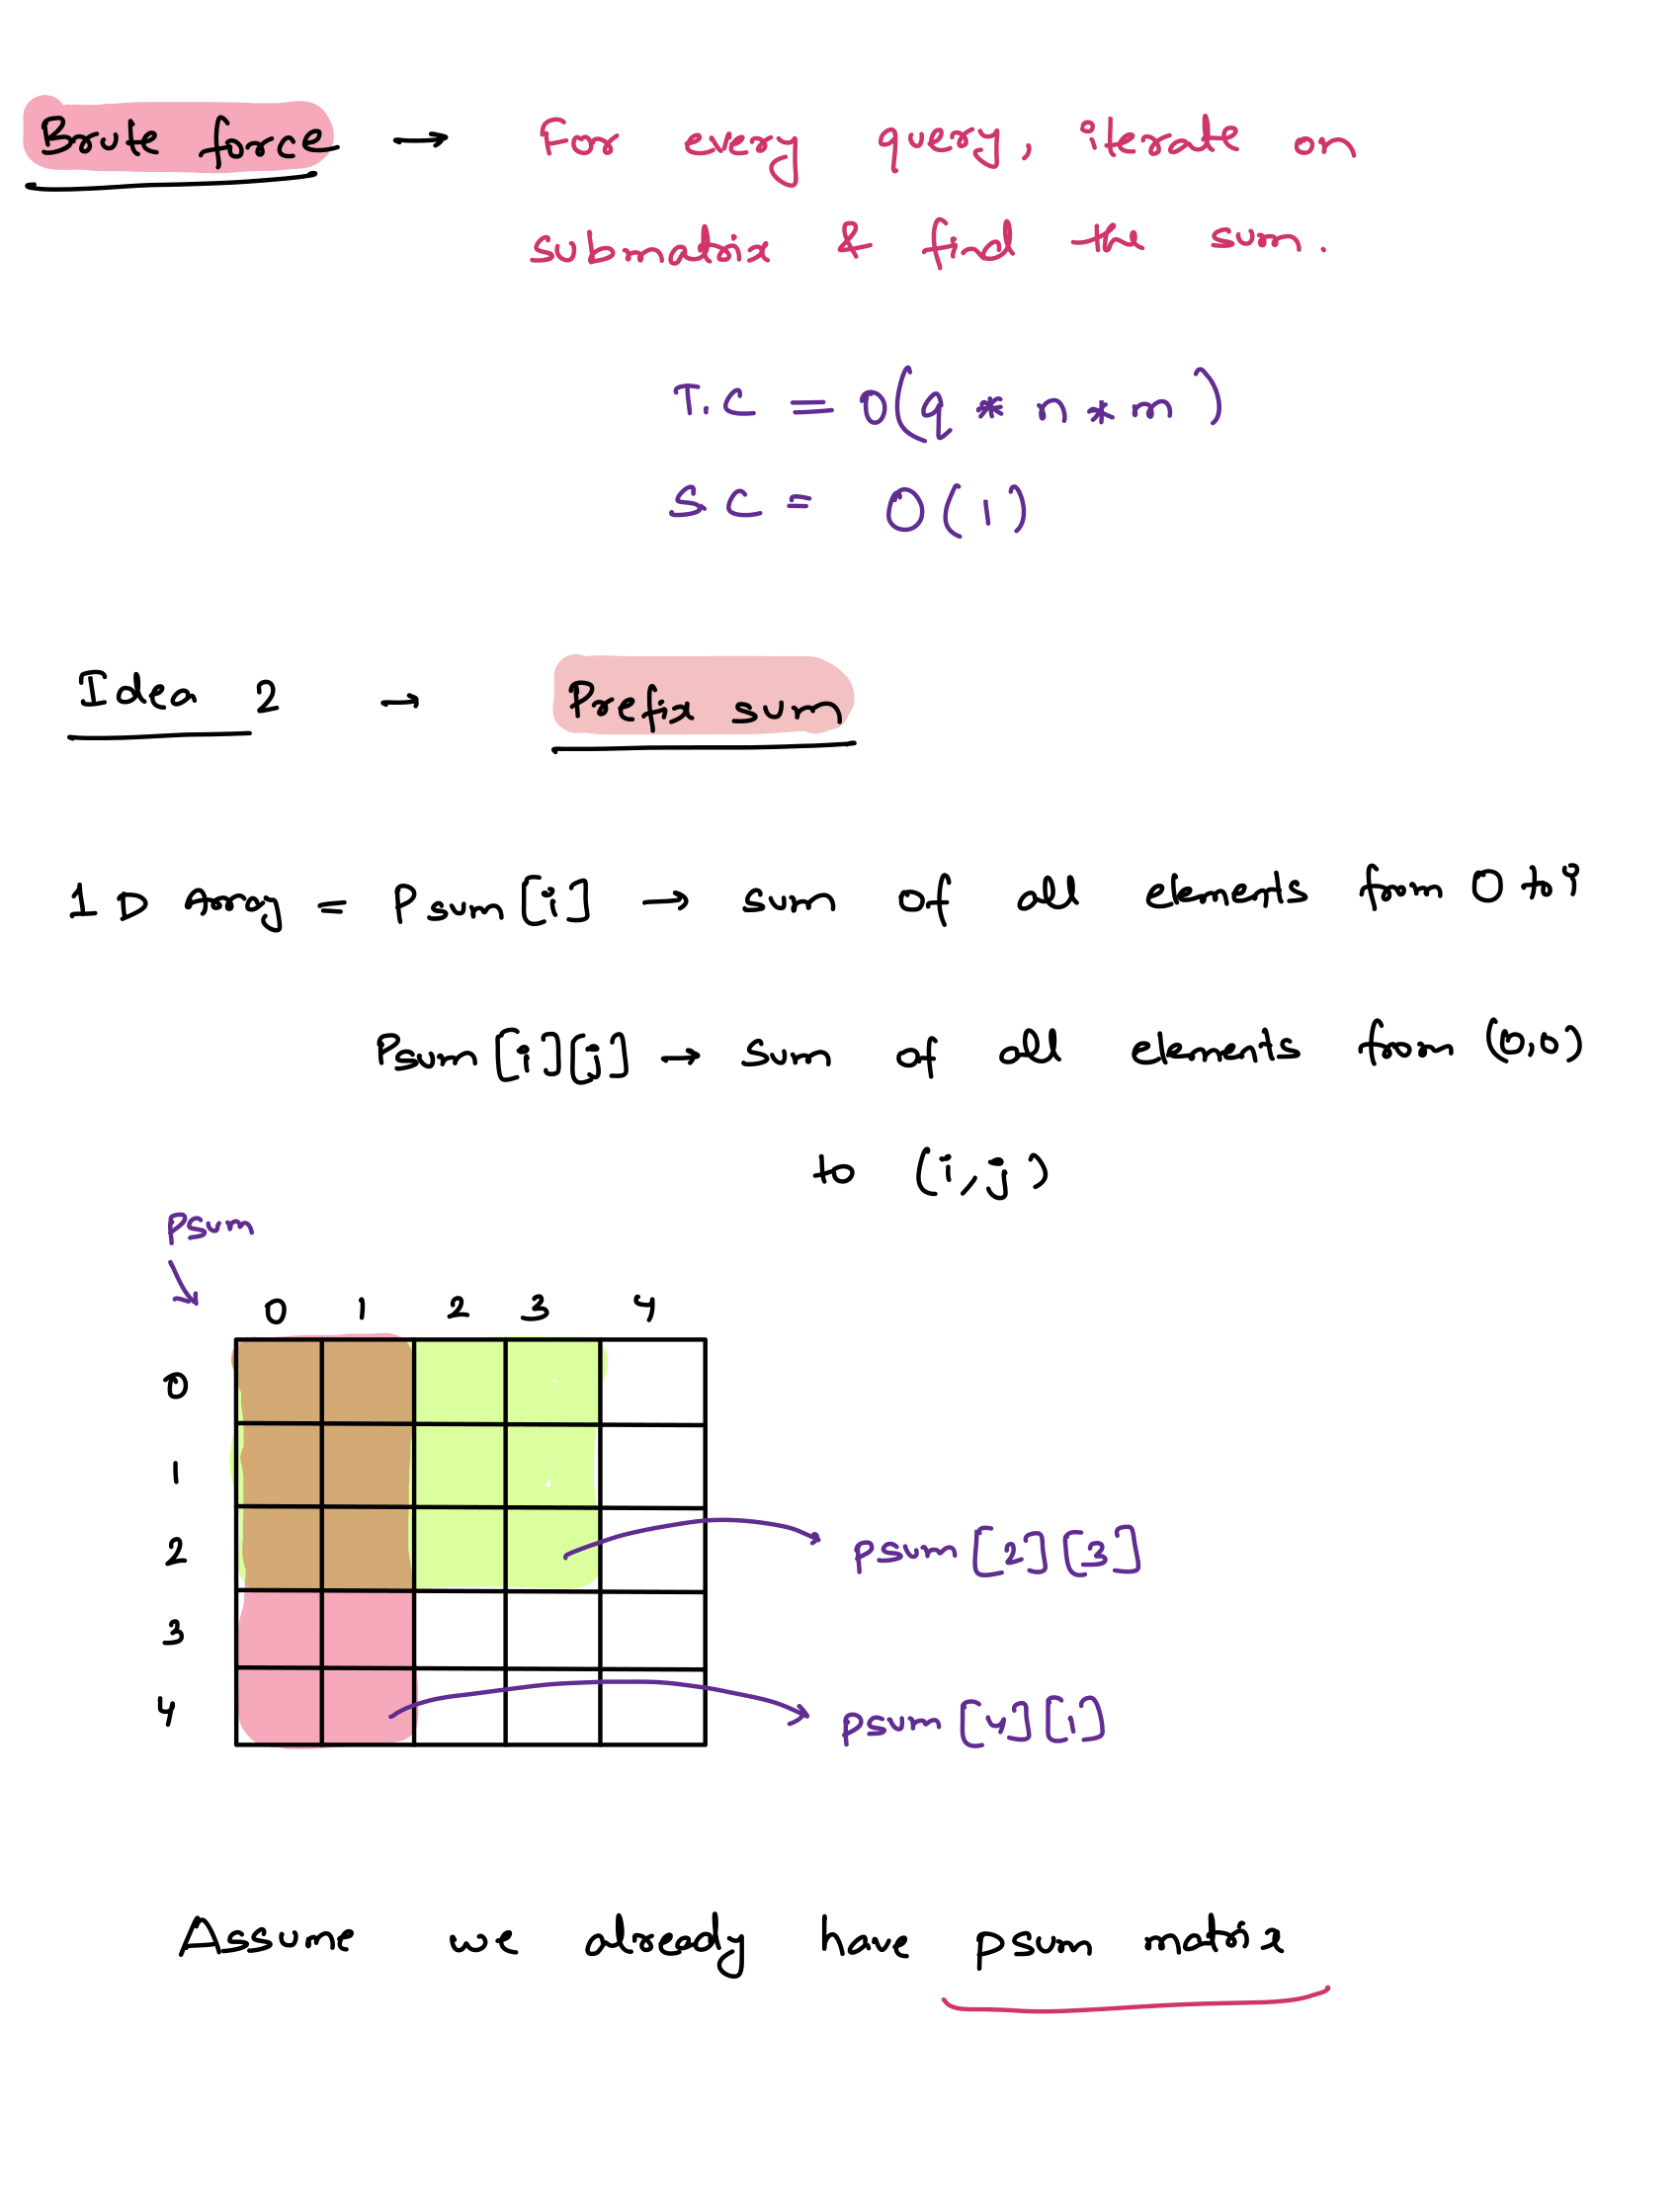 Brute force → For every query, iterate on
submatrix & find the sum.
T.C = O(q * n * m)
SC = O(1)
Idea 2 → Prefix sum
1D Array = Psum[i] → sum of all elements from 0 to i
Psum[i][j] → sum of all elements from (0,0)
to (i,j)
psum
0 1 2 3 4
0
1
2 psum[2][3]
3
4 psum[4][1]
Assume we already have psum matrix